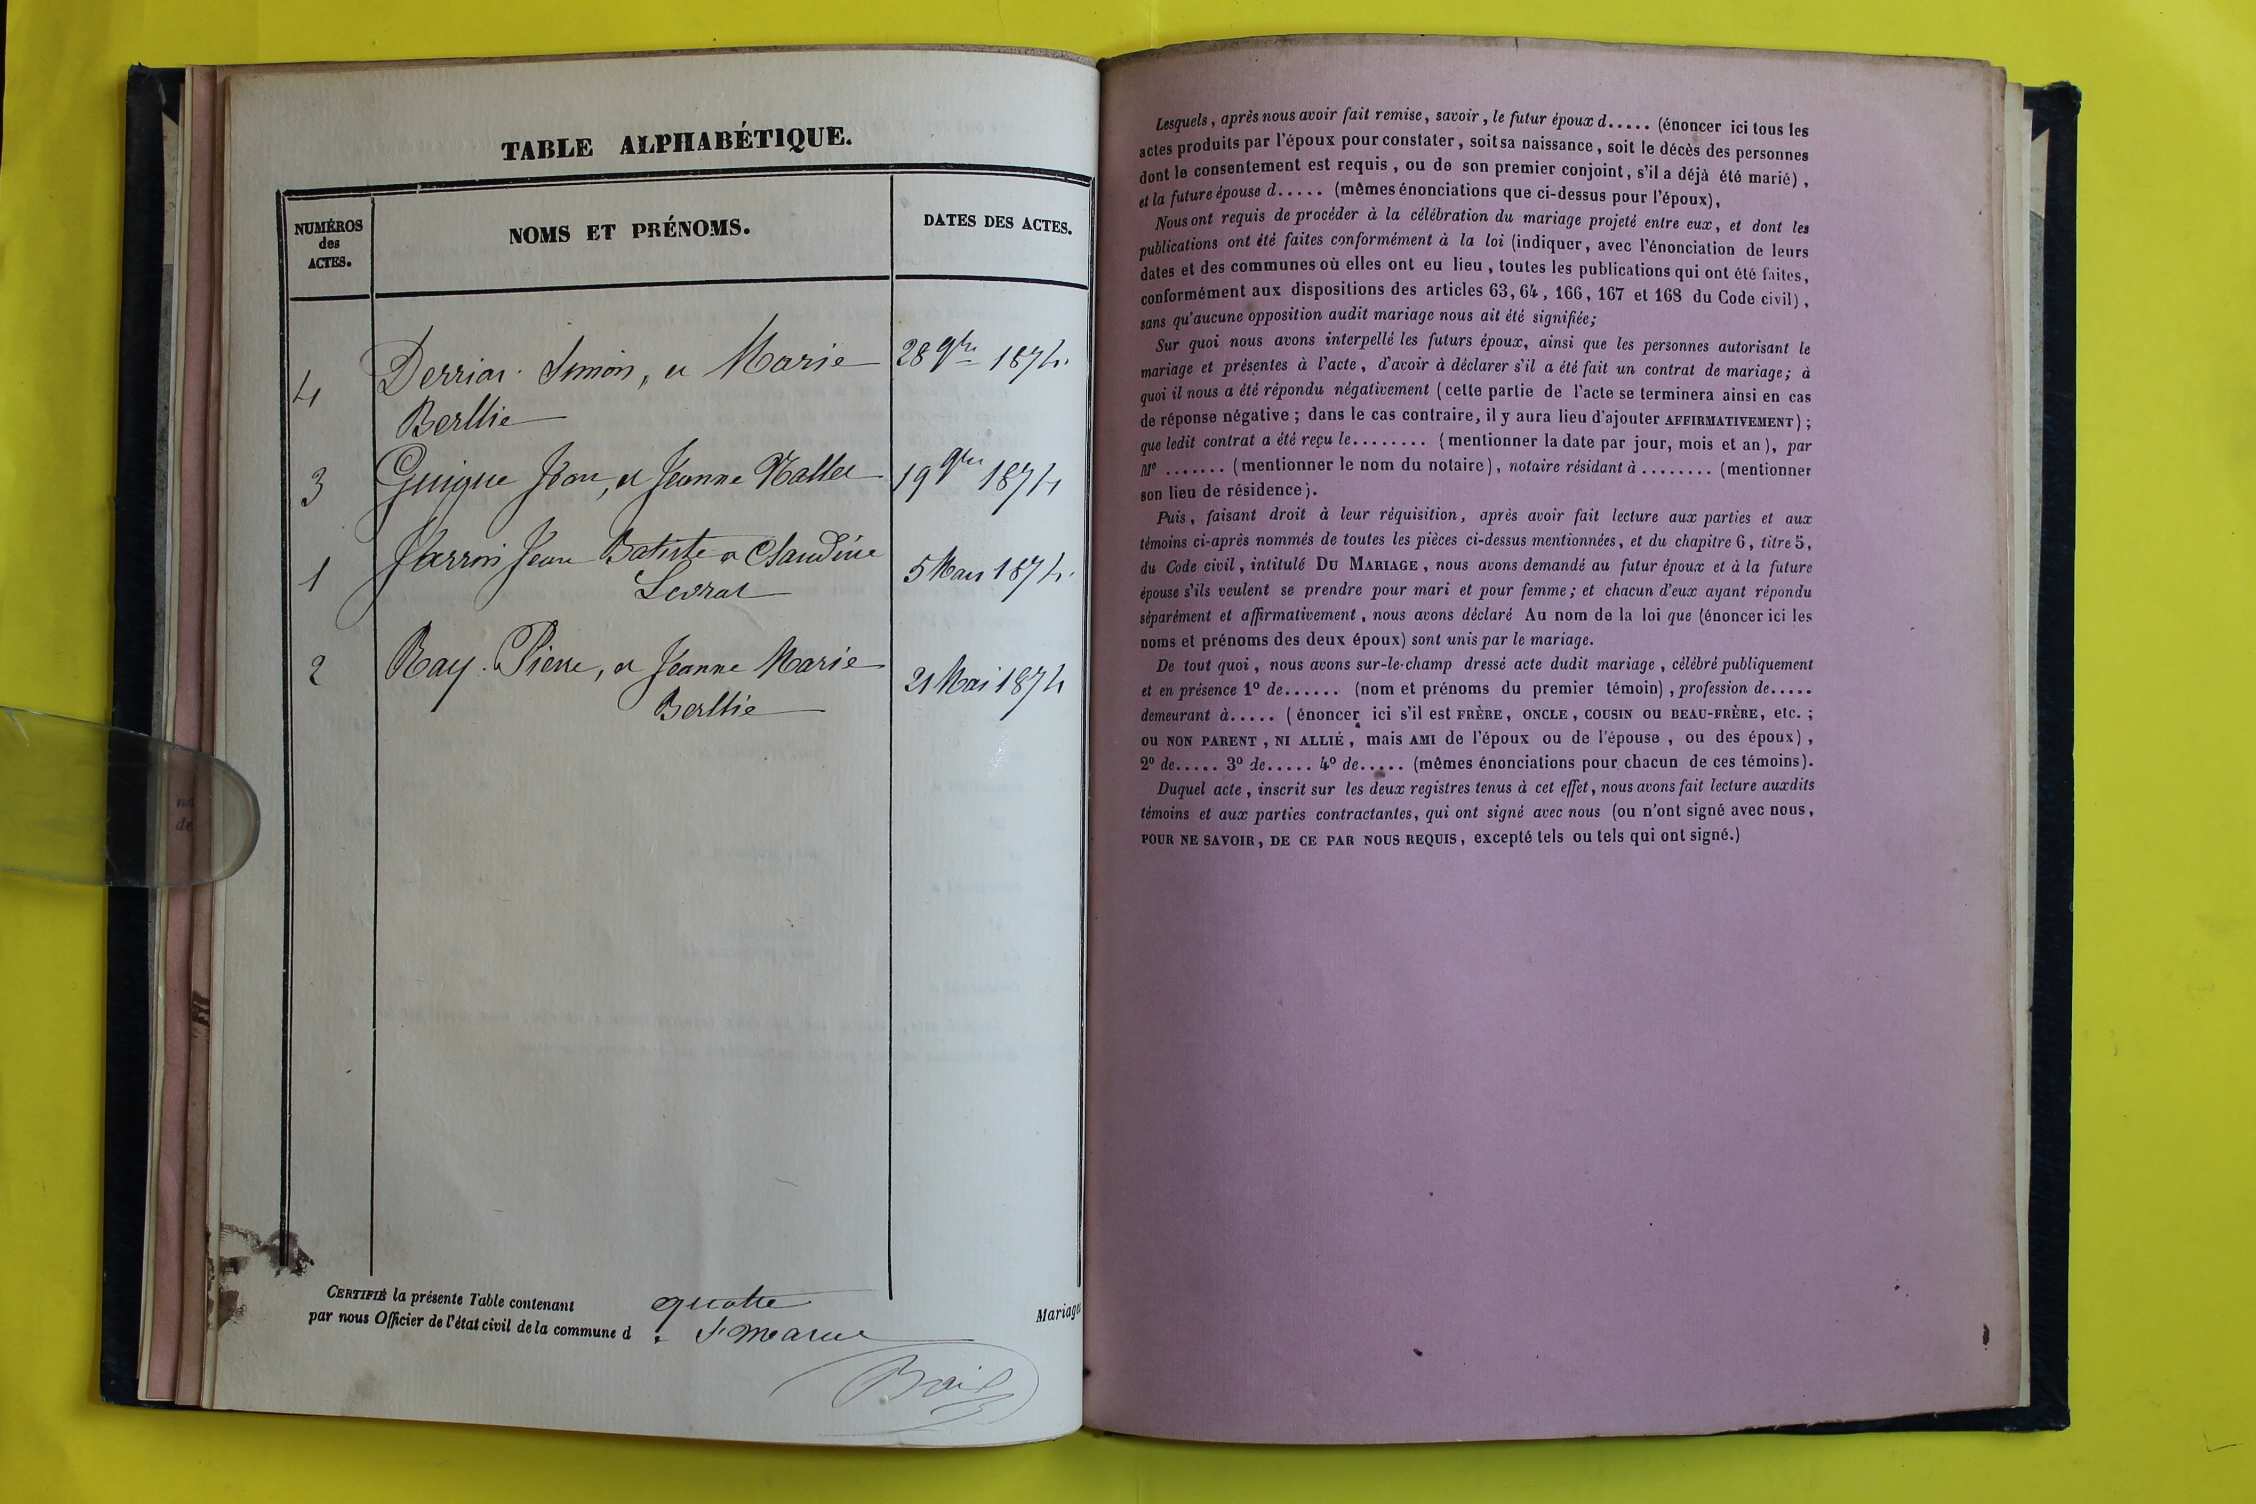 TABLE ALPHABÉTIQUE.
NUMÉROS
des
ACTES.
NOMS ET PRÉNOMS.
DATES DES ACTES.
4 Derrias Simon, et Marie 28 9bre 1874.
Berllie
3 Guigue Jean, et Jeanne Mallet 19 9bre 1874
1 Jarrin Jean Batiste et Claudine 5 Mars 1874.
Levrat
2 Ray Pierre, et Jeanne Marie 21 Mai 1874
Berllie
CERTIFIÉ la présente Table contenant quatre Mariages
par nous Officier de l'état civil de la commune d
no
de
Lesquels, après nous avoir fait remise, savoir, le futur époux d..... (énoncer ici tous les
actes produits par l'époux pour constater, soit sa naissance, soit le décès des personnes
dont le consentement est requis, ou de son premier conjoint, s'il a déjà été marié),
et la future épouse d..... (mêmes énonciations que ci-dessus pour l'époux),
Nous ont requis de procéder à la célébration du mariage projeté entre eux, et dont les
publications ont été faites conformément à la loi (indiquer, avec l'énonciation de leurs
dates et des communes où elles ont eu lieu, toutes les publications qui ont été faites,
conformément aux dispositions des articles 63, 64, 166, 167 et 168 du Code civil),
sans qu'aucune opposition audit mariage nous ait été signifiée;
Sur quoi nous avons interpellé les futurs époux, ainsi que les personnes autorisant le
mariage et présentes à l'acte, d'avoir à déclarer s'il a été fait un contrat de mariage; à
quoi il nous a été répondu négativement (cette partie de l'acte se terminera ainsi en cas
de réponse négative; dans le cas contraire, il y aura lieu d'ajouter AFFIRMATIVEMENT);
que ledit contrat a été reçu le........ (mentionner la date par jour, mois et an), par
Me ....... (mentionner le nom du notaire), notaire résidant à ........ (mentionner
son lieu de résidence).
Puis, faisant droit à leur réquisition, après avoir fait lecture aux parties et aux
témoins ci-après nommés de toutes les pièces ci-dessus mentionnées, et du chapitre 6, titre 5,
du Code civil, intitulé DU MARIAGE, nous avons demandé au futur époux et à la future
épouse s'ils veulent se prendre pour mari et pour femme; et chacun d'eux ayant répondu
séparément et affirmativement, nous avons déclaré Au nom de la loi que (énoncer ici les
noms et prénoms des deux époux) sont unis par le mariage.
De tout quoi, nous avons sur-le-champ dressé acte dudit mariage, célébré publiquement
et en présence 1º de...... (nom et prénoms du premier témoin), profession de.....
demeurant à..... (énoncer ici s'il est FRÈRE, ONCLE, COUSIN ou BEAU-FRÈRE, etc.;
ou NON PARENT, NI ALLIÉ, mais AMI de l'époux ou de l'épouse, ou des époux),
2º de..... 3º de..... 4º de..... (mêmes énonciations pour chacun de ces témoins).
Duquel acte, inscrit sur les deux registres tenus à cet effet, nous avons fait lecture auxdits
témoins et aux parties contractantes, qui ont signé avec nous (ou n'ont signé avec nous,
POUR NE SAVOIR, DE CE PAR NOUS REQUIS, excepté tels ou tels qui ont signé.)